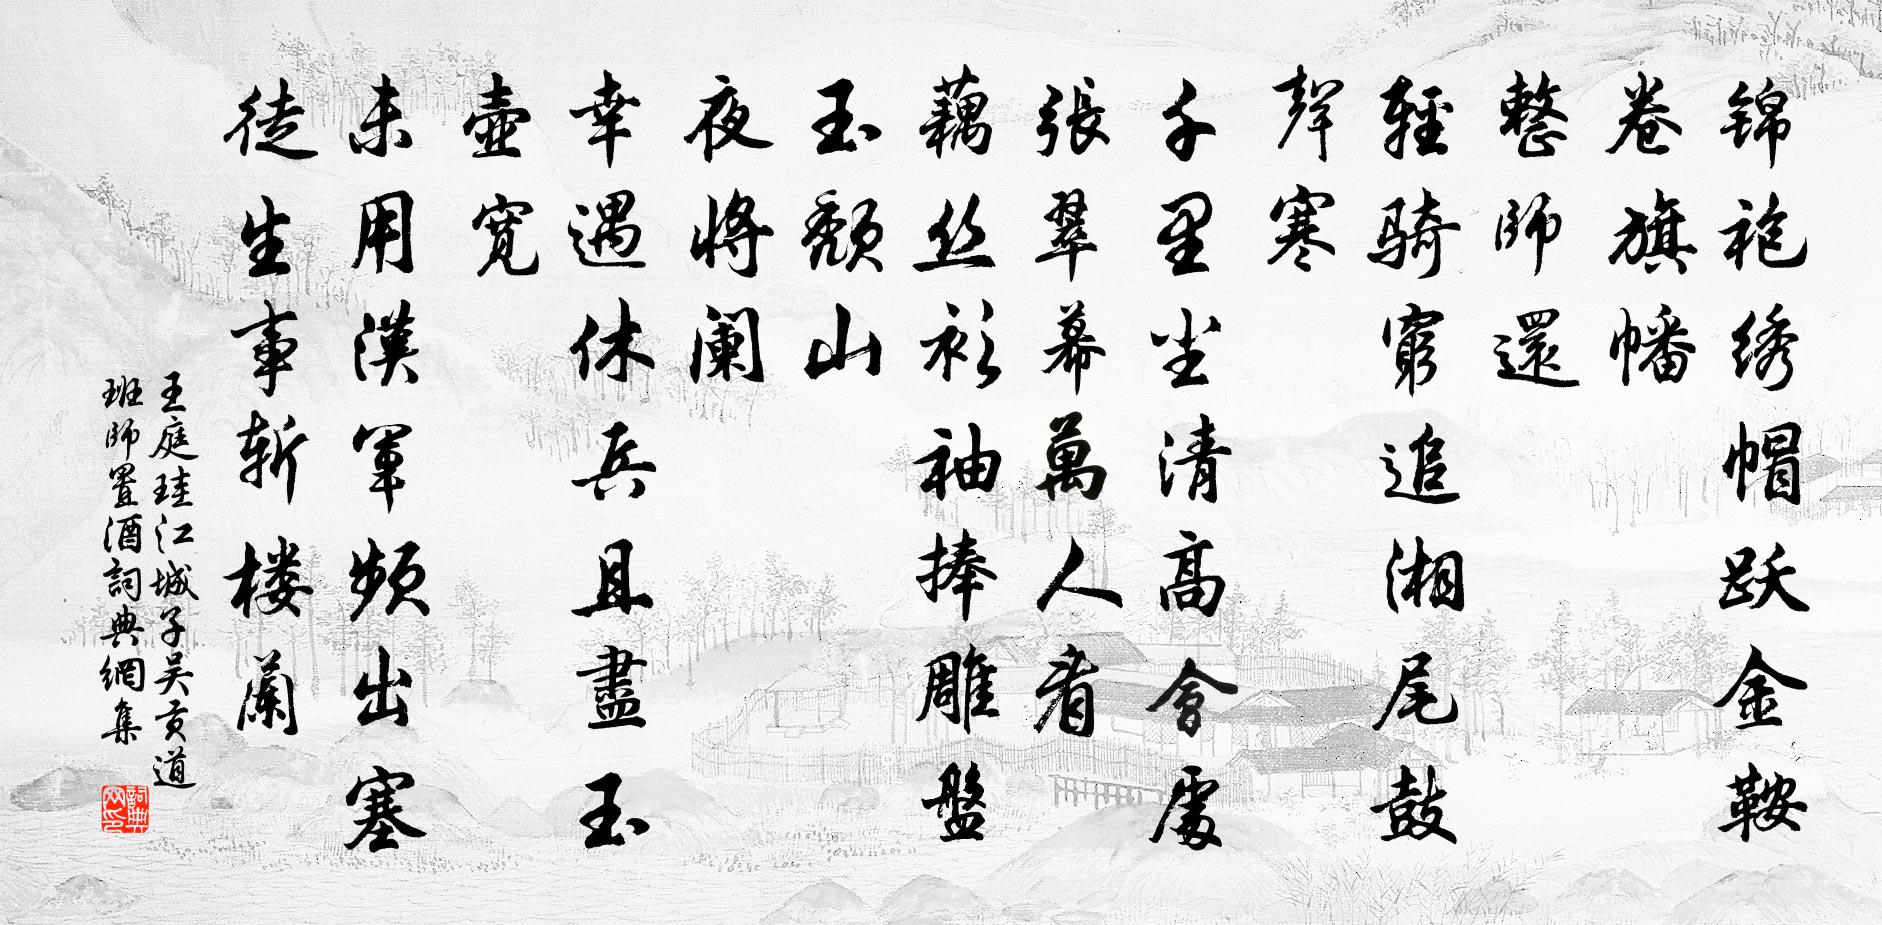 錦袍绣帽跃金鞍
卷旗幡
整師還
輕騎窮追湘尾鼓
聲寒
千里尘清高會處
張翠幕萬人看
藕丝衫袖捧雕盤
玉颓山
夜将阑
幸遇休兵且盡玉
壺寬
未用漢軍頻出塞
徒生事斩楼蘭
王庭珪江城子吴贡道
班师置酒詞典網集
詞典网印